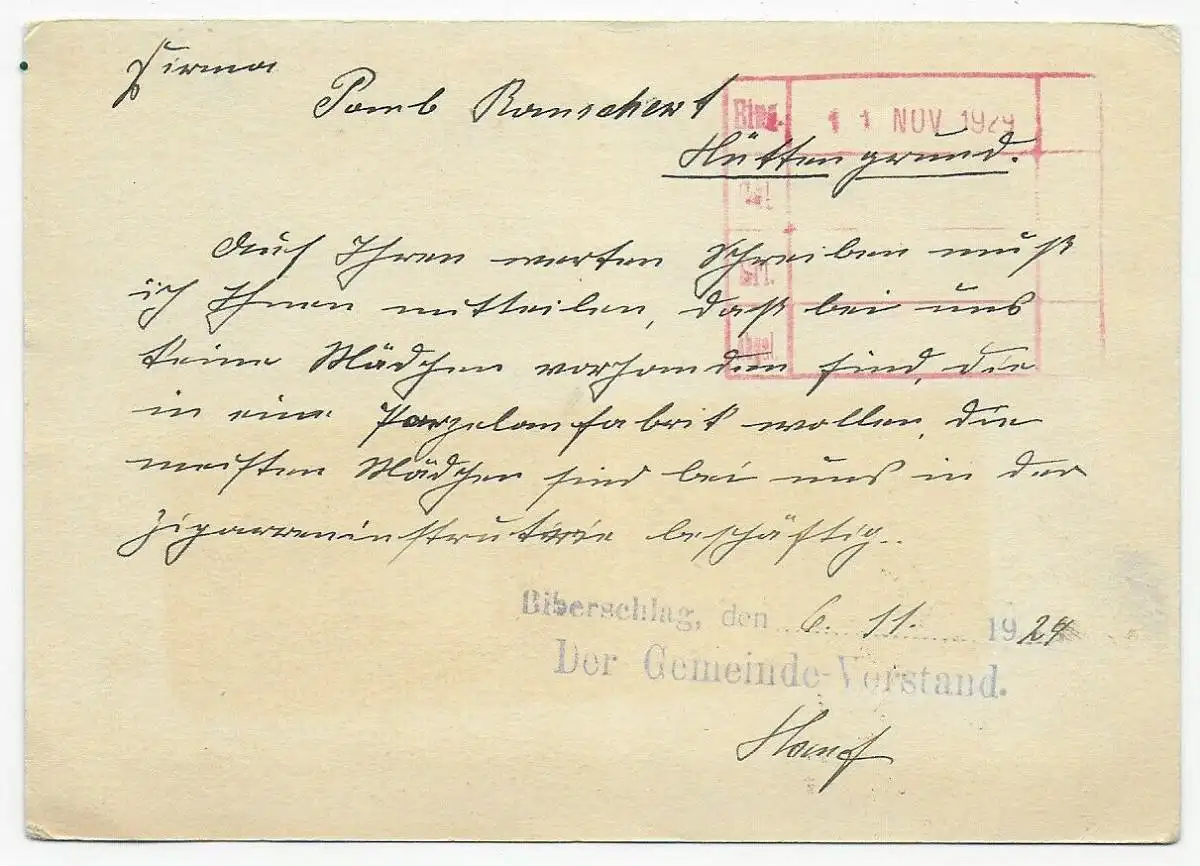 Firma
Paul Rauschert
Hüttengrund.
Eing. 11 NOV 1929
Auf Ihren werten Schreiben muß
ich Ihnen mitteilen, daß bei uns
keine Mädchen vorhanden sind, die
in eine Porzelanfabrik wollen, die
meisten Mädchen sind bei uns in der
Zigarreninstrutrie beschäftig..
Biberschlag, den 6. 11. 1929
Der Gemeinde-Vorstand.